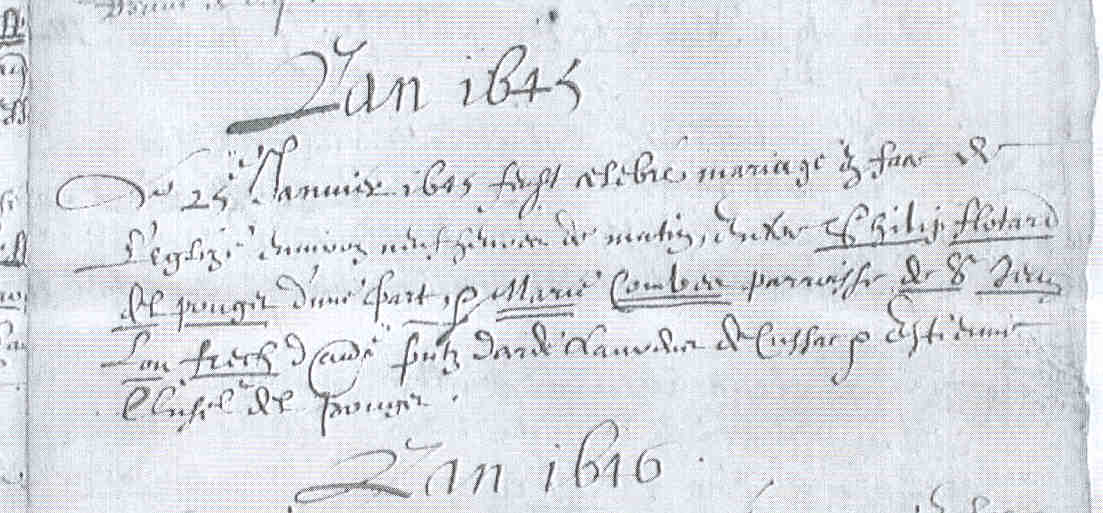 L'an 1645
Le 25 Janvier 1645 feust celebré mariage en face de
l'eglize environ neuf heures de matin, entre Philip flotard
del pouget d'une part, et Marie Combes parroisse de St Jean
Lou frech d'autre
del pouget.
L'an 1646